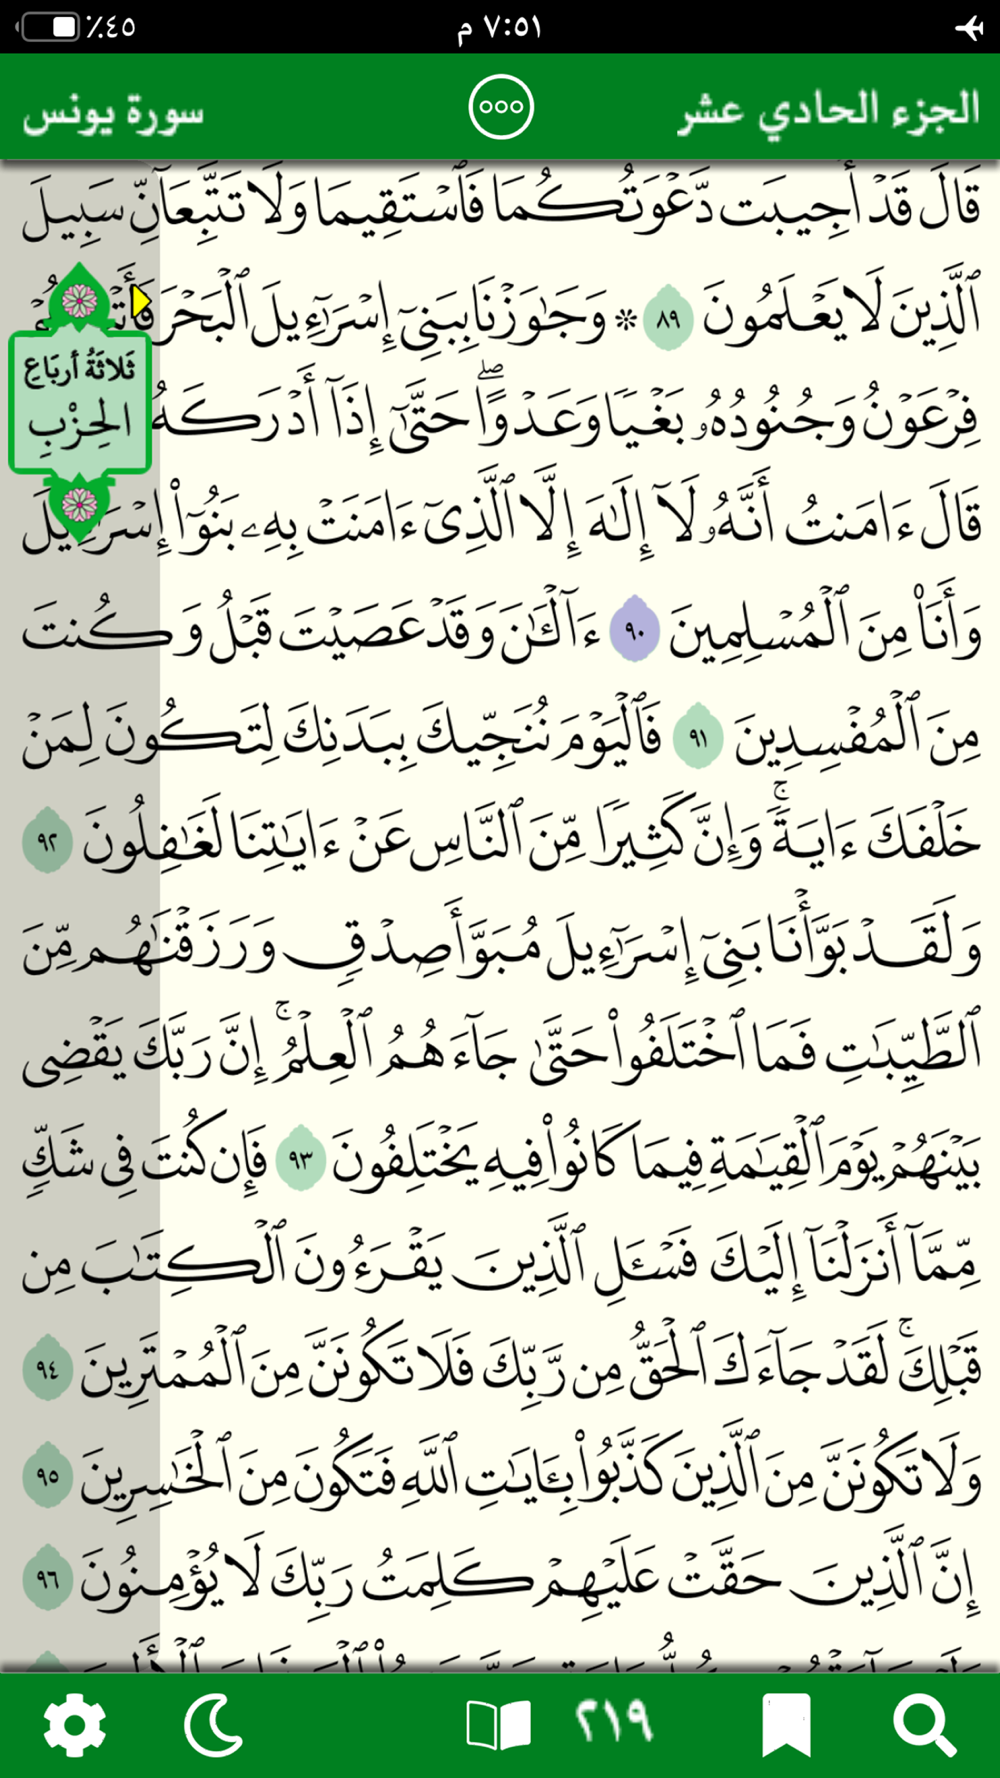 ٪٤٥
٧:٥١ م
الجزء الحادي عشر
سورة يونس
قَالَ قَدْ أُجِيبَت دَّعْوَتُكُمَا فَٱسْتَقِيمَا وَلَا تَتَّبِعَآنِّ سَبِيلَ
ٱلَّذِينَ لَا يَعْلَمُونَ ٨٩ * وَجَٰوَزْنَا بِبَنِىٓ إِسْرَٰٓءِيلَ ٱلْبَحْرَ
ثَلاثَةُ أربَاعِ
الحِزْبِ
فِرْعَوْنُ وَجُنُودُهُۥ بَغْيًا وَعَدْوًا ۖ حَتَّىٰٓ إِذَآ أَدْرَكَهُ
قَالَ ءَامَنتُ أَنَّهُۥ لَآ إِلَٰهَ إِلَّا ٱلَّذِىٓ ءَامَنَتْ بِهِۦ بَنُوٓا۟ إِسْرَٰٓءِيلَ
وَأَنَا۠ مِنَ ٱلْمُسْلِمِينَ ٩٠ ءَآلْـَٰٔنَ وَقَدْ عَصَيْتَ قَبْلُ وَكُنتَ
مِنَ ٱلْمُفْسِدِينَ ٩١ فَٱلْيَوْمَ نُنَجِّيكَ بِبَدَنِكَ لِتَكُونَ لِمَنْ
خَلْفَكَ ءَايَةً ۚ وَإِنَّ كَثِيرًا مِّنَ ٱلنَّاسِ عَنْ ءَايَٰتِنَا لَغَٰفِلُونَ ٩٢
وَلَقَدْ بَوَّأْنَا بَنِىٓ إِسْرَٰٓءِيلَ مُبَوَّأَ صِدْقٍ وَرَزَقْنَٰهُم مِّنَ
ٱلطَّيِّبَٰتِ فَمَا ٱخْتَلَفُوا۟ حَتَّىٰ جَآءَهُمُ ٱلْعِلْمُ ۚ إِنَّ رَبَّكَ يَقْضِى
بَيْنَهُمْ يَوْمَ ٱلْقِيَٰمَةِ فِيمَا كَانُوا۟ فِيهِ يَخْتَلِفُونَ ٩٣ فَإِن كُنتَ فِى شَكٍّ
مِّمَّآ أَنزَلْنَآ إِلَيْكَ فَسْـَٔلِ ٱلَّذِينَ يَقْرَءُونَ ٱلْكِتَٰبَ مِن
قَبْلِكَ ۚ لَقَدْ جَآءَكَ ٱلْحَقُّ مِن رَّبِّكَ فَلَا تَكُونَنَّ مِنَ ٱلْمُمْتَرِينَ ٩٤
وَلَا تَكُونَنَّ مِنَ ٱلَّذِينَ كَذَّبُوا۟ بِـَٔايَٰتِ ٱللَّهِ فَتَكُونَ مِنَ ٱلْخَٰسِرِينَ ٩٥
إِنَّ ٱلَّذِينَ حَقَّتْ عَلَيْهِمْ كَلِمَتُ رَبِّكَ لَا يُؤْمِنُونَ ٩٦
٢١٩